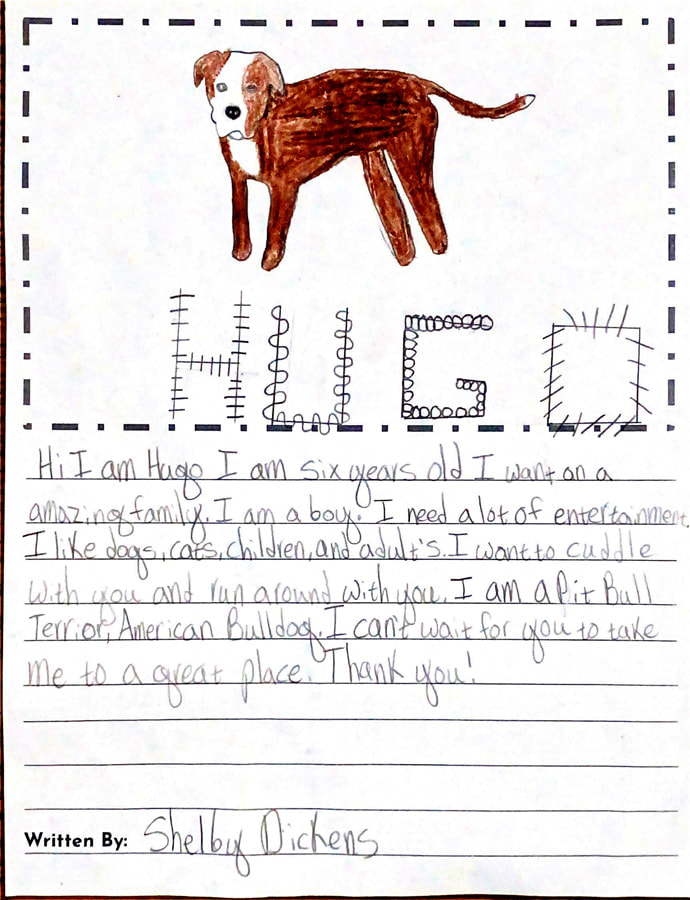 HUGO
Hi I am Hugo I am six years old I want on a
amazing family. I am a boy. I need a lot of entertainment.
I like dogs, cats, children, and adult's. I want to cuddle
with you and run around with you. I am a Pit Bull
Terrior, American Bulldog. I can't wait for you to take
me to a great place. Thank you!
Written By: Shelby Dickens